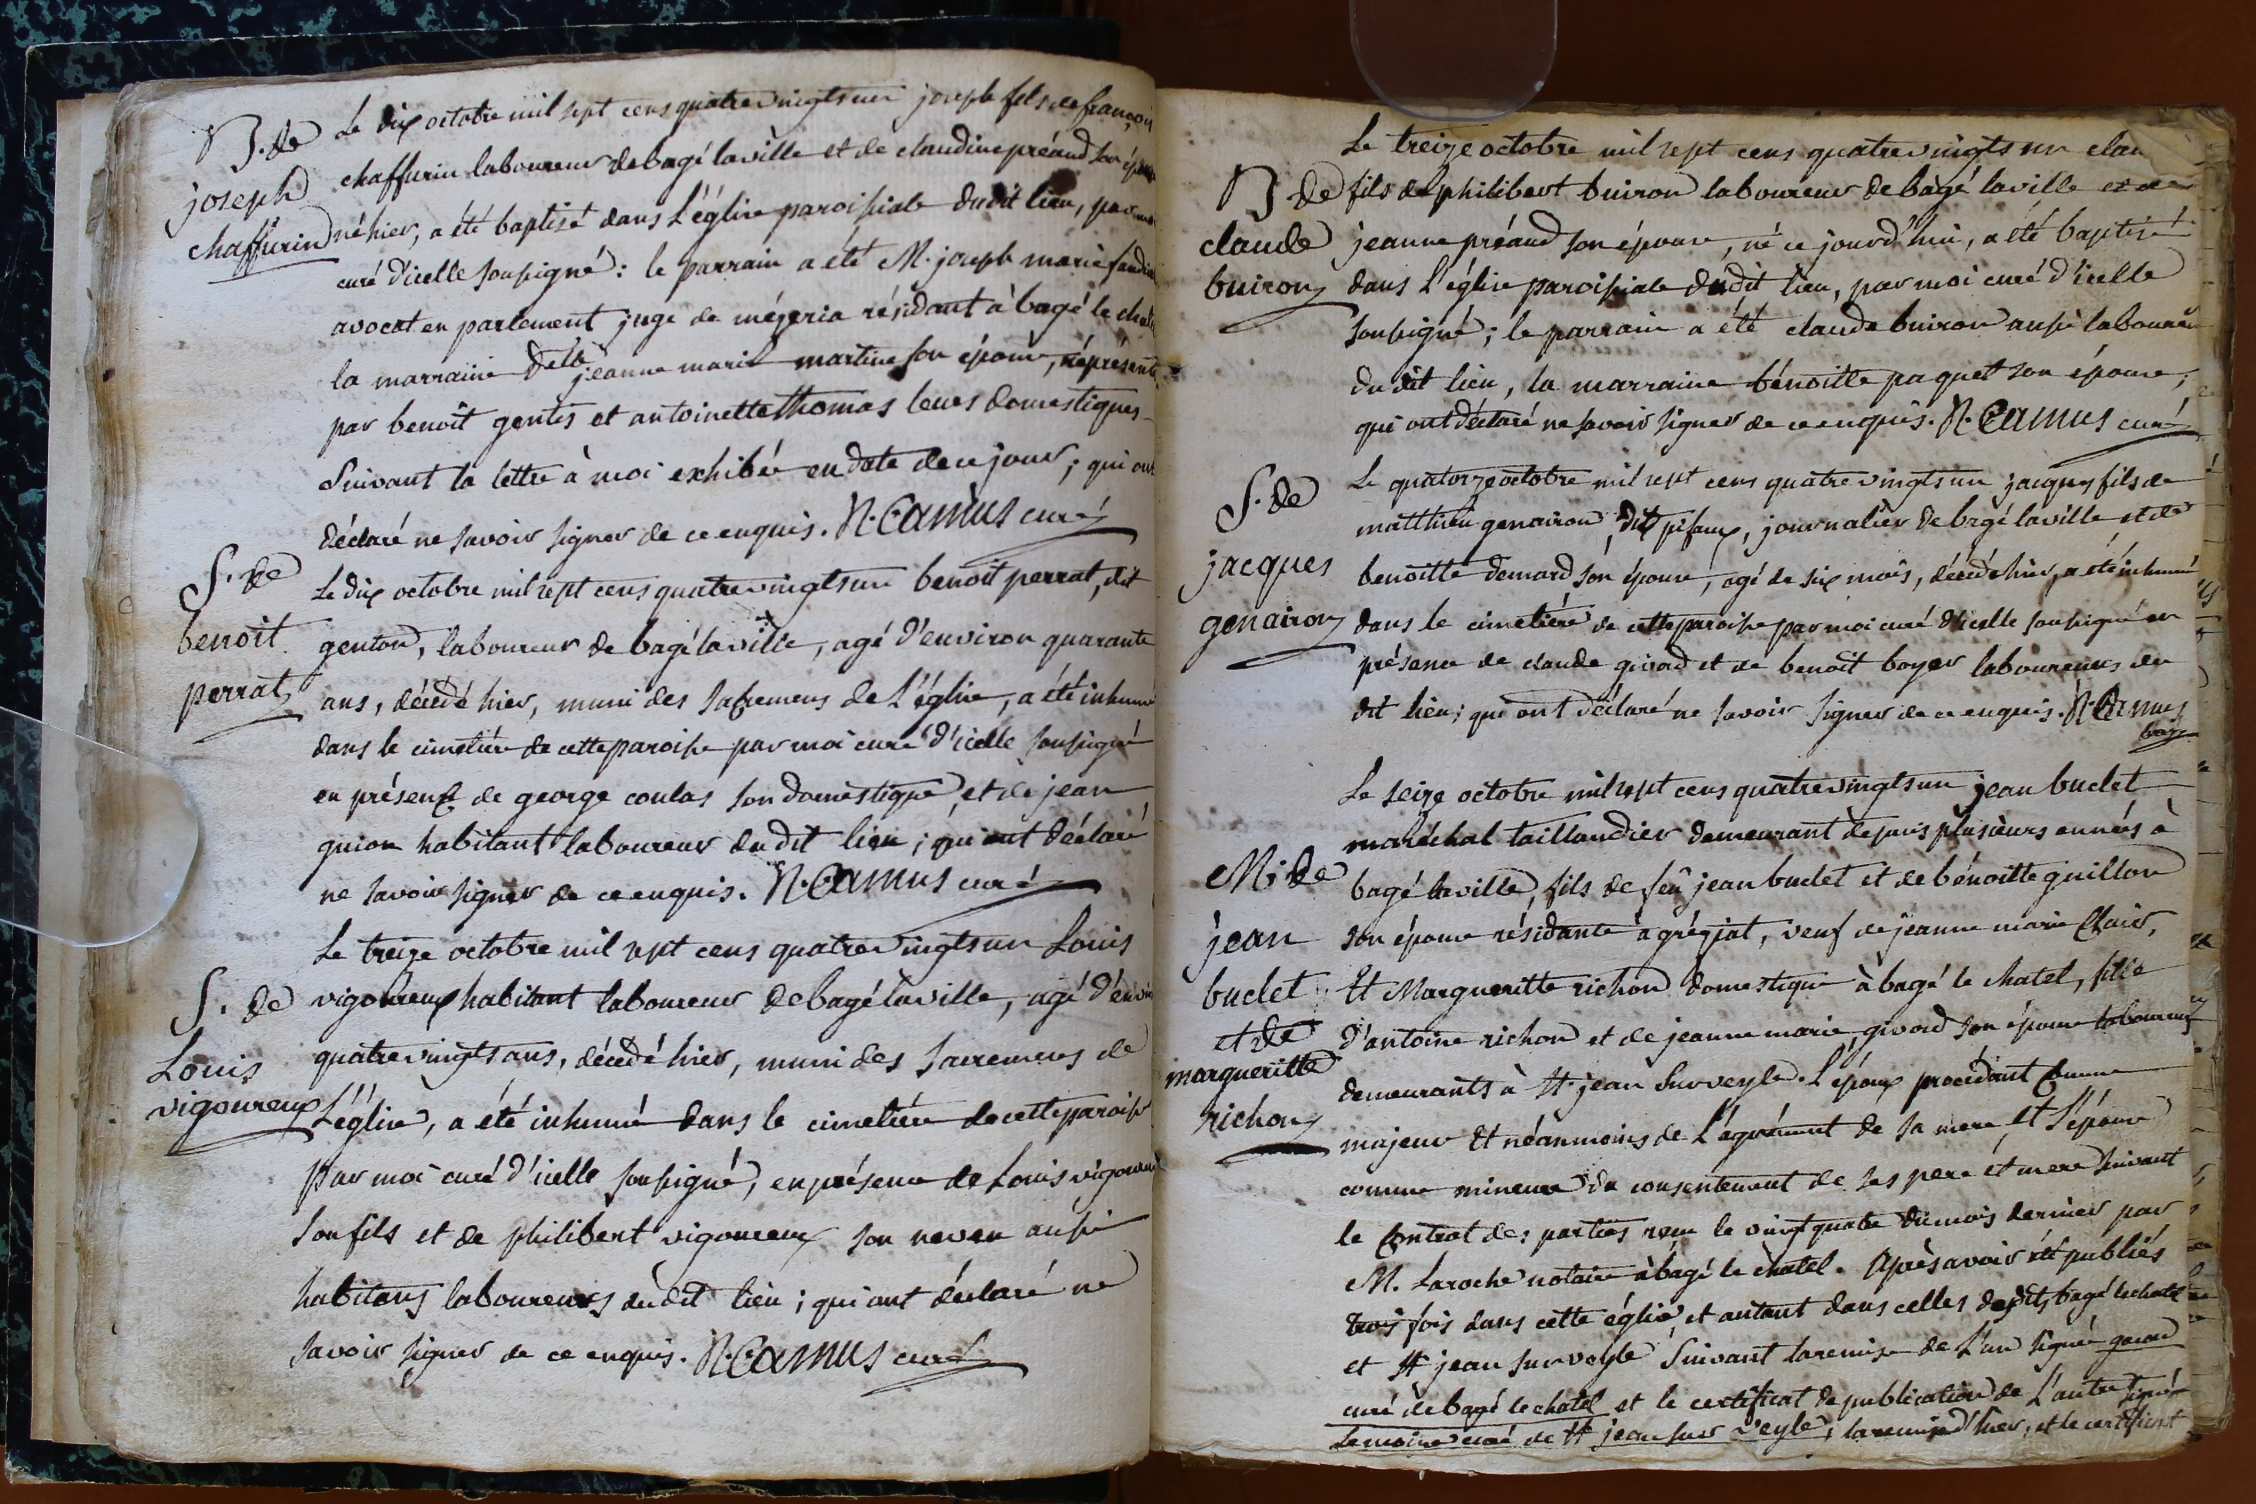 B. de
joseph
chaffurin
Le dix octobre mil sept cens quatre vingts un joseph fils de françois
chaffurin laboureur de bagé la ville et de claudine préaud son épouse
né hier, a été baptisé dans L'église paroissiale dudit lieu, par moi
curé d'icelle soussigné : le parrain a été M. joseph marie
avocat en parlement juge de mézeria résidant à bagé le chatel
la marraine Delle jeanne marie martine son épouse, réprésentés
par benoît gentes et antoinette thomas leurs domestiques
Suivant la lettre à moi exhibée en date de ce jour ; qui ont
déclaré ne savoir signer de ce enquis. N. Camus curé
S. de
benoit
perrat
Le dix octobre mil sept cens quatre vingts un benoit perrat, dit
genton, laboureur de bagé la ville, agé d'environ quarante
ans, décédé hier, muni des sacremens de L'église, a été inhumé
dans le cimetière de cette paroisse par moi curé d'icelle soussigné
en présence de george coulas son domestique, et de jean
guion habitant laboureur du dit lieu ; qui ont déclaré
ne savoir signer de ce enquis. N. Camus curé
S. de
Louis
vigoureux
Le treize octobre mil sept cens quatre vingts un Louis
vigoureux habitant laboureur de bagé la ville, agé d'environ
quatre vingts ans, décédé hier, muni des sacremens de
L'église, a été inhumé dans le cimetière de cette paroisse
par moi curé d'icelle soussigné, en présence de Louis vigoureux
son fils et de philibert vigoureux son neveu aussi
habitans laboureurs du dit lieu ; qui ont déclaré ne
savoir signer de ce enquis. N. Camus curé
B de
claude
buiron
Le treize octobre mil sept cens quatre vingts un clau
fils de philibert buiron laboureur de bagé la ville et de
jeanne préaud son épouse, né ce jourd'hui, a été baptisé
dans L'église paroissiale dudit lieu, par moi curé d'icelle
soussigné ; le parrain a été claude buiron aussi laboureur
du dit lieu, la marraine bénoitte paquet son épouse ;
qui ont déclaré ne savoir signer de ce enquis. N. Camus curé
S. de
jacques
genairon
Le quatorze octobre mil sept cens quatre vingts un jacques fils de
matthieu genairon, dit, journalier de bagé la ville et de
benoitte demard son épouse, agé de six mois, décédé hier, a été inhumé
dans le cimetière de cette paroisse par moi curé d'icelle soussigné en
présence de claude givord et de benoit boyer laboureurs du
dit lieu ; qui ont déclaré ne savoir signer de ce enquis. N. Camus
M. de
jean
buclet
et de
margueritte
richon
Le seize octobre mil sept cens quatre vingts un jean buclet
maréchal taillandier demeurant depuis plusieurs années à
bagé la ville, fils de feû jean buclet et de bénoitte guillon
son épouse résidante à grégiat, veuf de jeanne marie Clair,
Et Margueritte richon domestique à bagé le chatel, fille
d'antoine richon et de jeanne marie givord son épouse laboureurs
demeurants à St. jean Sur veyle. L'époux procédant Comme
majeur Et néanmoins de L'agrément de sa mere, et L'épouse
comme mineure du consentement de ses pere et mere suivant
le Contrat des parties reçu le vingt quatre du mois dernier par
M. Laroche notaire à bagé le chatel. Après avoir été publiés
trois fois dans cette église et autant dans celles desdits bagé le chatel
et St jean sur veyle Suivant la remise de L'un signée
curé de bagé le chatel et le certificat de publication de L'autre signé
Lemoine curé de St jean sur Veyle, la remise d'hier, et le certificat